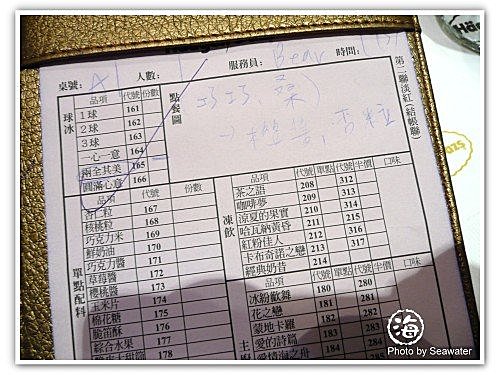 桌號: A1 人數: 服務員: Bear 時間:
第二聯淡紅(結帳聯)
球冰
品項 代號 份數
1球 161
2球 162
3球 163
一心一意 164
兩全其美 165
圓滿心意 166
點餐圖
巧巧、桑)
單點配料
品項 代號 份數
杏仁粒 167
核桃粒 168
巧克力米 169
鮮奶油 170
巧克力醬 171
草莓醬 172
櫻桃醬 173
玉米片 174
棉花糖 175
脆笛酥 176
綜合水果 177
178
凍飲
品項 代號 單點 代號 半價 口味
茶之語 208 312
咖啡夢 209 313
涼夏的果實 210 314
哈瓦納黃昏 211 215
紅粉佳人 212 316
卡布奇諾之戀 213 217
經典奶昔 214
品項 代號 單點 代號 半價 口味
冰紛歡舞 180 280
花之戀 181 281
蒙地卡羅 182 282
愛的詩篇 183 283
愛情海之舟 184 284
海
Photo by Seawater